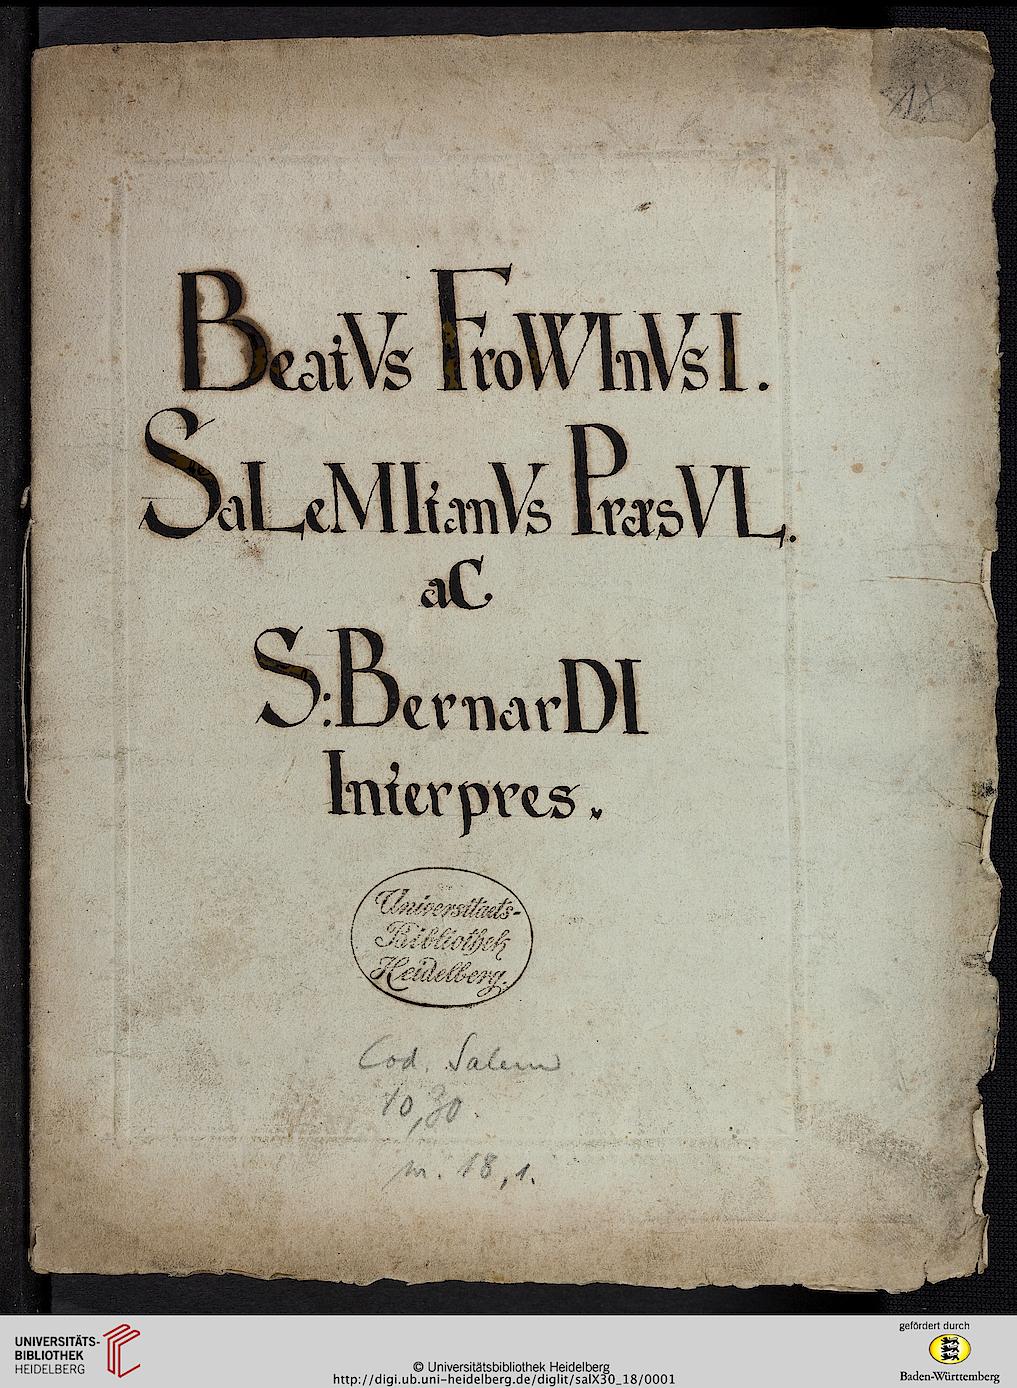 1X
BeatVs FroWInVs I.
SaLeMItanVs PræsVL.
aC
S: BernarDI
Interpres.
Universitaets-
Bibliothek
Heidelberg.
Cod. Salem
10,30
nr. 18,1.
UNIVERSITÄTS-
BIBLIOTHEK
HEIDELBERG
© Universitätsbibliothek Heidelberg
http://digi.ub.uni-heidelberg.de/diglit/salX30_18/0001
gefördert durch
Baden-Württemberg